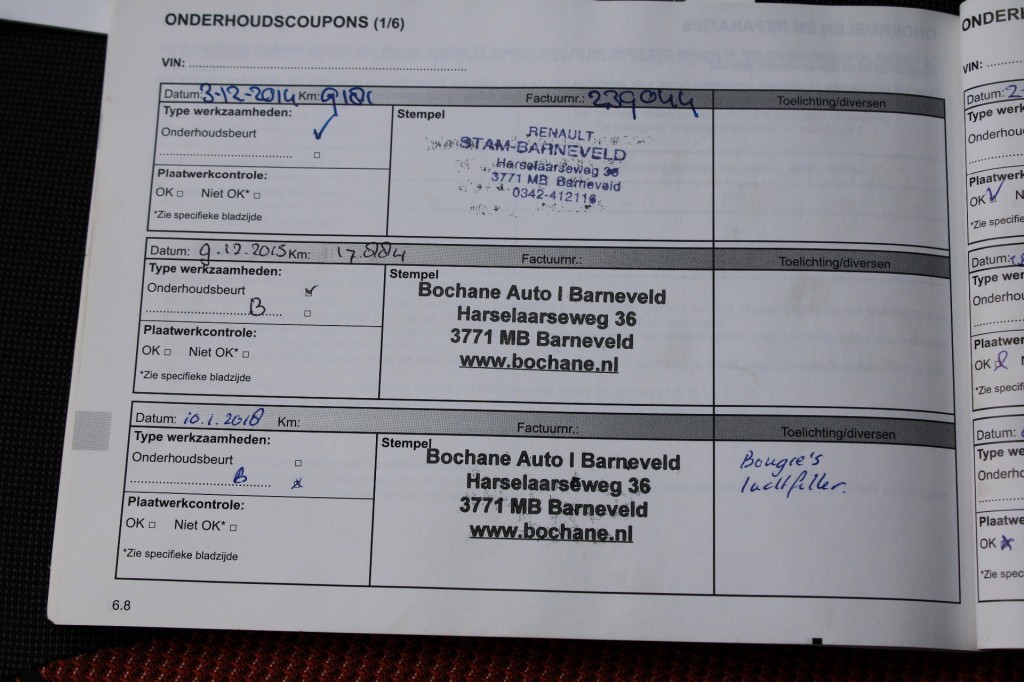 ONDERHOUDSCOUPONS (1/6)
VIN:
Datum: 3-12-2014 Km: Factuurnr.: 239044 Toelichting/diversen
Type werkzaamheden: Stempel
Onderhoudsbeurt
Plaatwerkcontrole:
OK Niet OK*
*Zie specifieke bladzijde
RENAULT
STAM-BARNEVELD
Harselaarseweg 36
3771 MB Barneveld
0342-412116
Datum: 9.12.2015 Km: 17.884 Factuurnr.: Toelichting/diversen
Type werkzaamheden: Stempel
Onderhoudsbeurt
B
Plaatwerkcontrole:
OK Niet OK*
*Zie specifieke bladzijde
Bochane Auto I Barneveld
Harselaarseweg 36
3771 MB Barneveld
www.bochane.nl
Datum: 10.1.2018 Km: Factuurnr.: Toelichting/diversen
Type werkzaamheden: Stempel
Onderhoudsbeurt
B
Plaatwerkcontrole:
OK Niet OK*
*Zie specifieke bladzijde
Bochane Auto I Barneveld
Harselaarseweg 36
3771 MB Barneveld
www.bochane.nl
Bougie's
luchtfilter.
6.8
VIN:
Datum:
OK
Datum:
OK
Datum:
OK